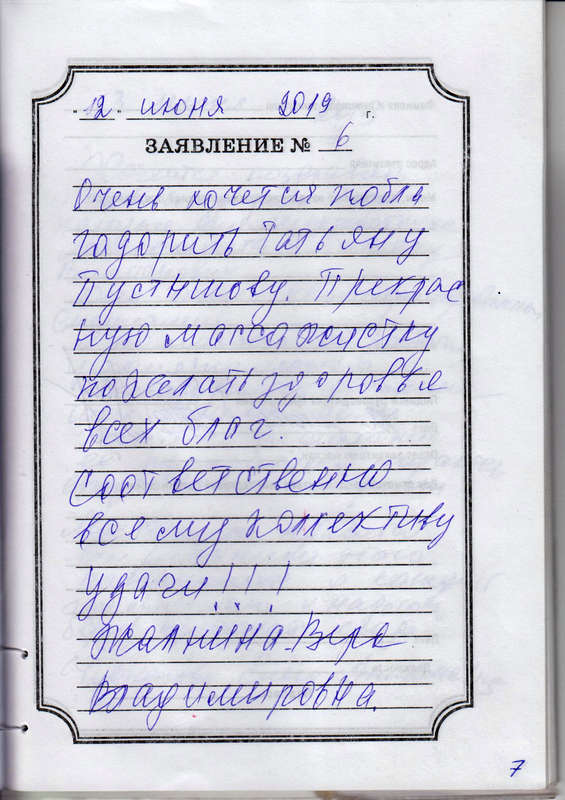 "12" июня 2019 г.
ЗАЯВЛЕНИЕ № 6
Очень хочется побла
годорить Татьяну
Пустышову. Прекрас
ную массажистку
пожелать здоровья
всех благ.
Соответственно
всему коллективу
удачи!!!
Вера
Владимировна.
7